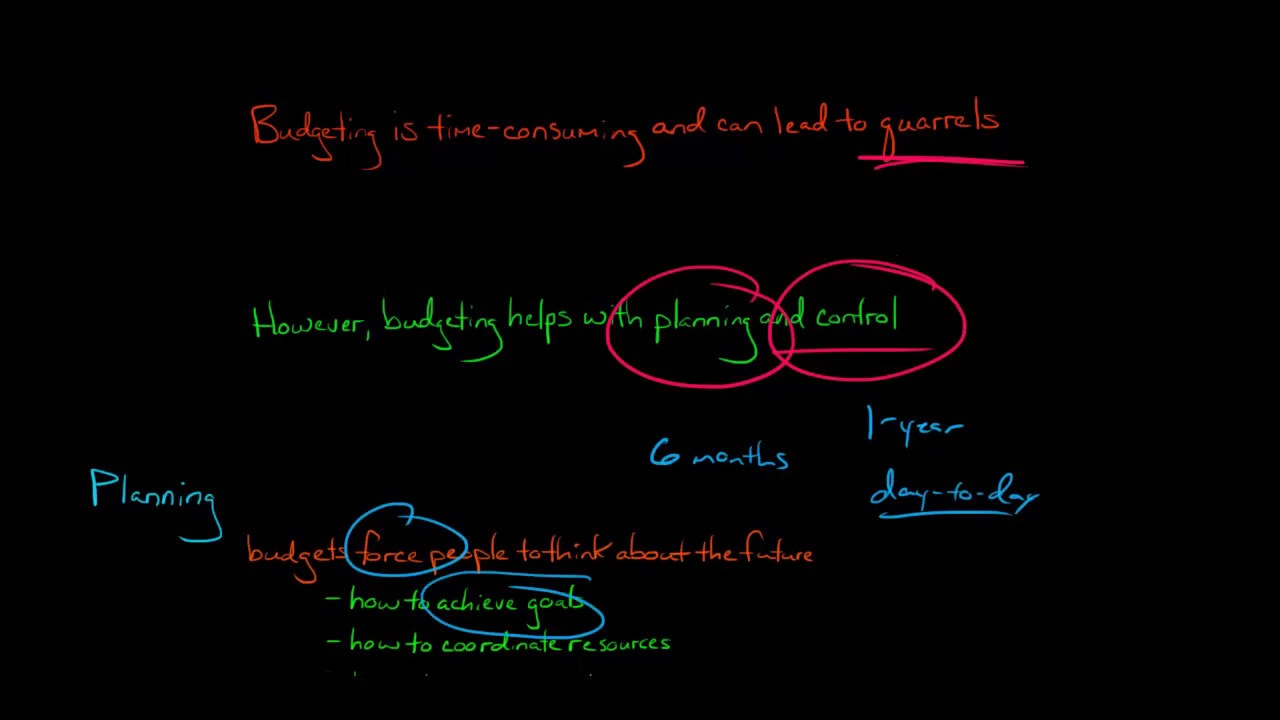 Budgeting is time-consuming and can lead to quarrels
However, budgeting helps with planning and control
1-year
6 months
day-to-day
Planning
budgets force people to think about the future
- how to achieve goals
- how to coordinate resources